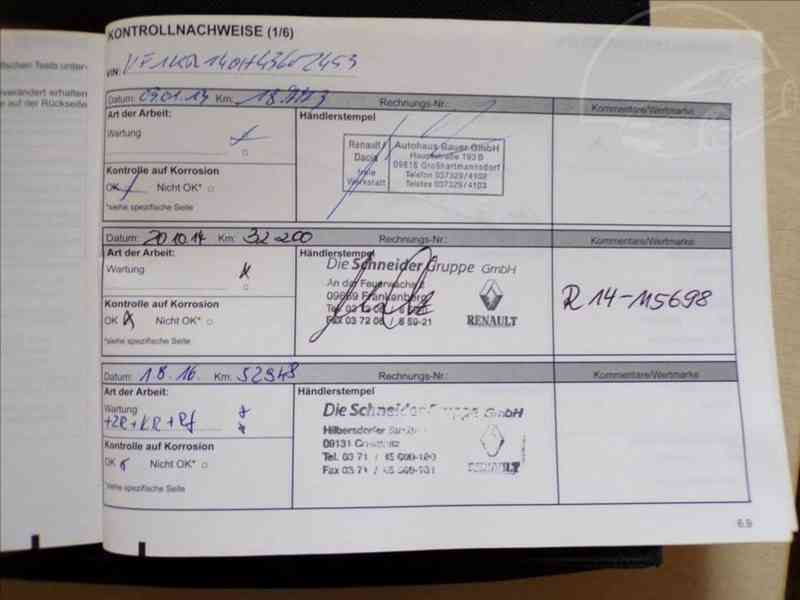 KONTROLLNACHWEISE (1/6)
tischen Tests unter-
VIN:
verändert erhalten
e auf der Rückseite
Datum: 03.01.13 Km: Rechnungs-Nr.: Kommentare/Wertmarke
Art der Arbeit: Händlerstempel
Wartung
Renault / Dacia freie Werkstatt
Autohaus Bauer GmbH
Hauptstraße 193 B
09618 Großhartmannsdorf
Telefon 037329/4102
Telefax 037329/4103
Kontrolle auf Korrosion
OK Nicht OK*
*siehe spezifische Seite
Datum: 20.10.14 Km: 32200 Rechnungs-Nr.: Kommentare/Wertmarke
Art der Arbeit: Händlerstempel
Wartung
Die Schneider Gruppe GmbH
An der Feuerwache
09669 Frankenberg
Fax 03 72 06 / 8 59-21
RENAULT
R 14-115698
Kontrolle auf Korrosion
OK Nicht OK*
*siehe spezifische Seite
Datum: 1.8.16. Km: 52948 Rechnungs-Nr.: Kommentare/Wertmarke
Art der Arbeit: Händlerstempel
Wartung
+ZR+KR+Rf
Die Schneider Gruppe GmbH
Hilbersdorfer
09131 Chemnitz
Tel. 03 71 /
Fax 03 71 /
RENAULT
Kontrolle auf Korrosion
OK Nicht OK*
*siehe spezifische Seite
6.9